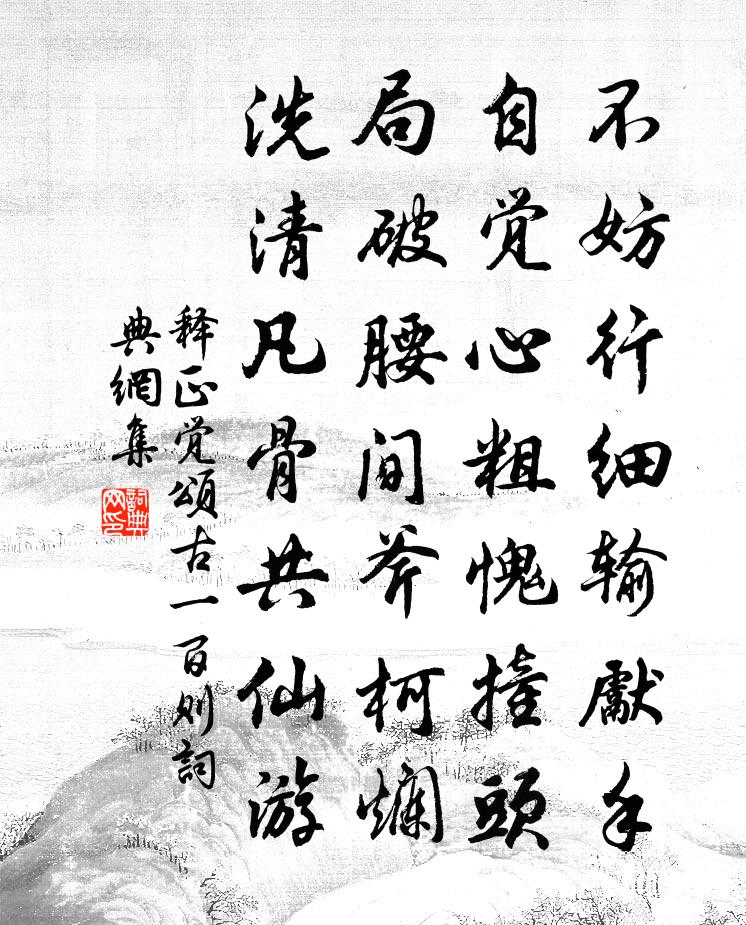 不妨行细输獻手
自觉心粗愧撞頭
局破腰间斧柯爛
洗清凡骨共仙游
释正觉頌古一百则詞
典網集
詞典
网印